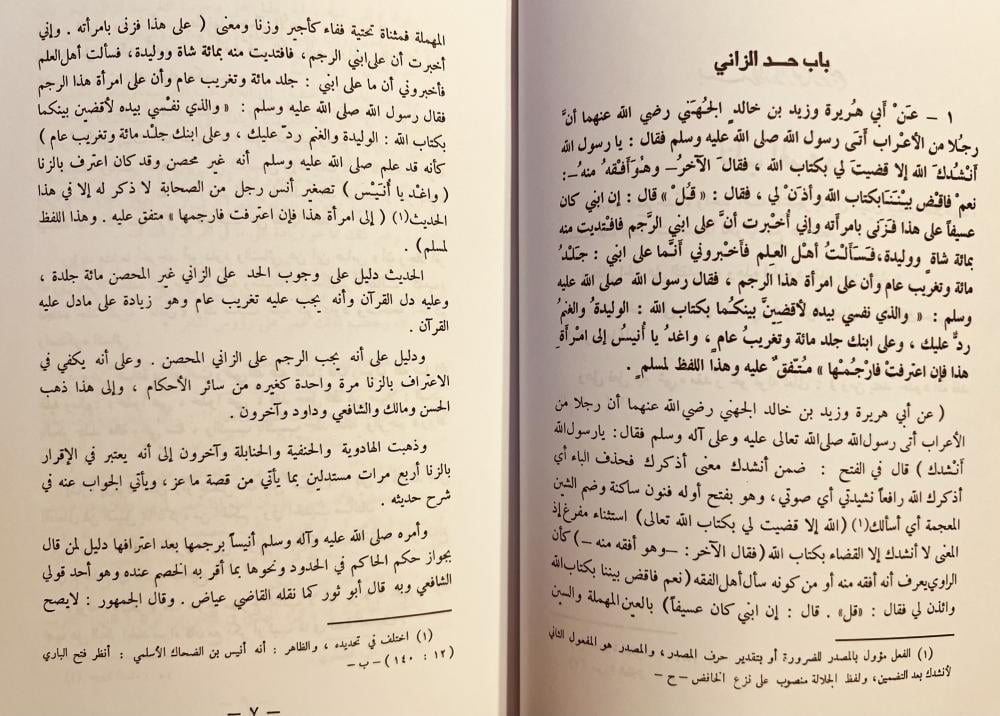 باب حـد الزاني
١ – عَنْ أَبي هُريرة وزيد بن خالدٍ الجُهَني رضي الله عنهما أَنَّ
رجُلًا من الأعْراب أَتَى رسول الله صلى الله عليه وسلم فقال : يا رسول الله
أَنْشُدكَ الله إلا قضيتَ لي بكتاب الله ، فقالَ الآخرُ – وهُوَ أَفْقهُ منهُ – :
نعمْ فاقْضِ بيْنَنَا بكتاب الله وأْذَنْ لي ، فقال : « قُلْ » قال : إن ابني كان
عسيفاً على هذا فَزَنَى بامرأته وإني أُخْبرت أنَّ على ابني الرَّجم فافتديت منه
بمائة شاةٍ ووليدة، فَسَأَلْتُ أهْلَ العِلم فَأَخْبروني أَنَّما على ابني : جَلْدُ
مائة وتغريب عام وأن على امرأة هذا الرجم ، فقال رسول الله صلى الله عليه
وسلم : « والذي نفسي بيده لأقضِينَّ بينكُما بكتاب الله : الوليدةُ والغنمُ
ردٌّ عليك ، وعلى ابنك جلد مائة وتغريبُ عام ٍ، واغدُ يا أُنيسُ إلى امرْأَةِ
هذا فإن اعترفتْ فارْجُمْها » مُتّفقٌ عليه وهذا اللفظ لمسلم ٍ .
( عن أبي هريرة وزيد بن خالد الجهني رضي الله عنهما أن رجلا من
الأعراب أتى رسول الله صلى الله تعالى عليه وعلى آله وسلم فقال : يا رسول الله
أنْشدك ) قال في الفتح : ضمن أنشدك معنى أذكرك فحذف الباء أي
أذكرك الله رافعاً نشيدتي أي صوتي، وهو بفتح أوله فنون ساكنة وضم الشين
المعجمة أي أسألك(١) (الله إلا قضيت لي بكتاب الله تعالى) استثناء مفرغ إذ
المعنى لا أنشدك إلا القضاء بكتاب الله (فقال الآخر : – وهو أفقه منه –) كأن
الراوي يعرف أنه أفقه منه أو من كونه سأل أهل الفقه (نعم فاقض بيننا بكتاب الله
وائذن لي فقال : «قل» . قال : إن ابني كان عسيفاً) بالعين المهملة والسين
(١) الفعل مؤول بالمصدر للضرورة أو بتقدير حرف المصدر، والمصدر هو المفعول الثاني
لأنشدك بعد التضمين، ولفظ الجلالة منصوب على نزع الخافض – ح –
المهملة فمثناة تحتية ففاء كأجير وزنا ومعنى ( على هذا فزنى بامرأته . وإني
أخبرت أن على ابني الرجم، فافتديت منه بمائة شاة ووليدة، فسألت أهل العلم
فأخبروني أن ما على ابني : جلد مائة وتغريب عام وأن على امرأة هذا الرجم
فقال رسول الله صلى الله عليه وسلم : « والذي نفْسي بيده لأقضين بينكما
بكتاب الله : الوليدة والغنم ردّ عليك ، وعلى ابنك جلْد مائة وتغريب عام )
كأنه قد علم صلى الله عليه وسلم أنه غير محصن وقد كان اعترف بالزنا
( واغْد يا أُنَيْس ) تصغير أنس رجل من الصحابة لا ذكر له إلا في هذا
الحديث(١) ( إلى امرأة هذا فإن اعترفت فارجمها » متفق عليه . وهذا اللفظ
لمسلم ) .
الحديث دليل على وجوب الحد على الزاني غير المحصن مائة جلدة ،
وعليه دل القرآن وأنه يجب عليه تغريب عام وهو زيادة على مادل عليه
القرآن .
ودليل على أنه يجب الرجم على الزاني المحصن . وعلى أنه يكفي في
الاعتراف بالزنا مرة واحدة كغيره من سائر الأحكام ، وإلى هذا ذهب
الحسن ومالك والشافعي وداود وآخرون .
وذهبت الهادوية والحنفية والحنابلة وآخرون إلى أنه يعتبر في الإقرار
بالزنا أربع مرات مستدلين بما يأتي من قصة ماعز، ويأتي الجواب عنه في
شرح حديثه .
وأمره صلى الله عليه وآله وسلم أنيساً برجمها بعد اعترافها دليل لمن قال
بجواز حكم الحاكم في الحدود ونحوها بما أقر به الخصم عنده وهو أحد قولي
الشافعي وبه قال أبو ثور كما نقله القاضي عياض . وقال الجمهور : لايصح
(١) اختلف في تحديده ، والظاهر : أنه أنيس بن الضحاك الأسلمي : أنظر فتح الباري
(١٢ : ١٤٠) – ب –
– ٧ –